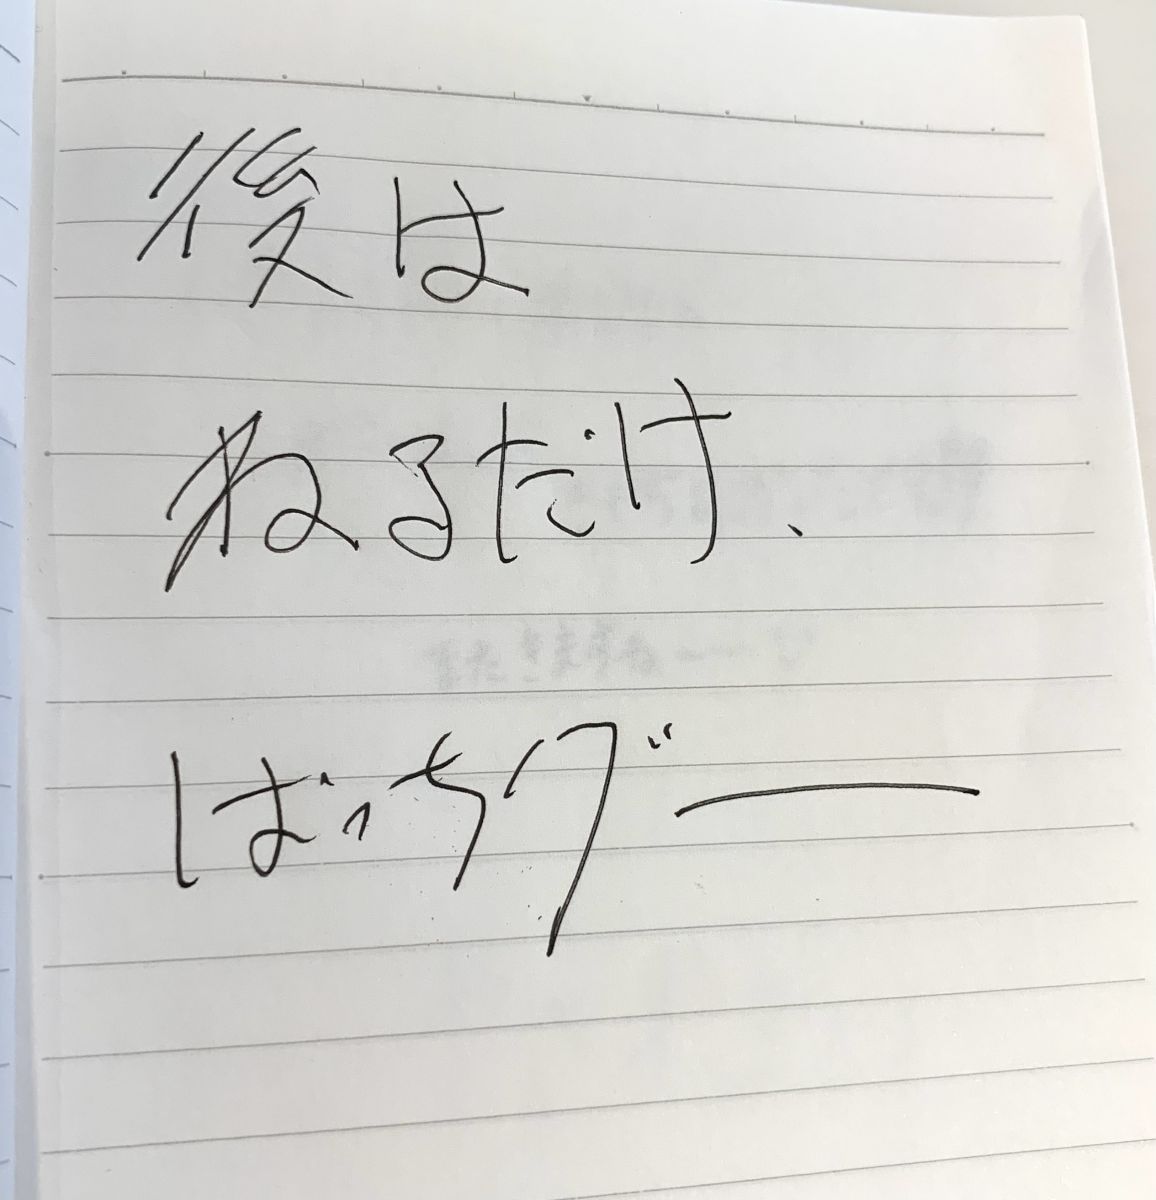 後は
ねるだけ、
ばっちグー